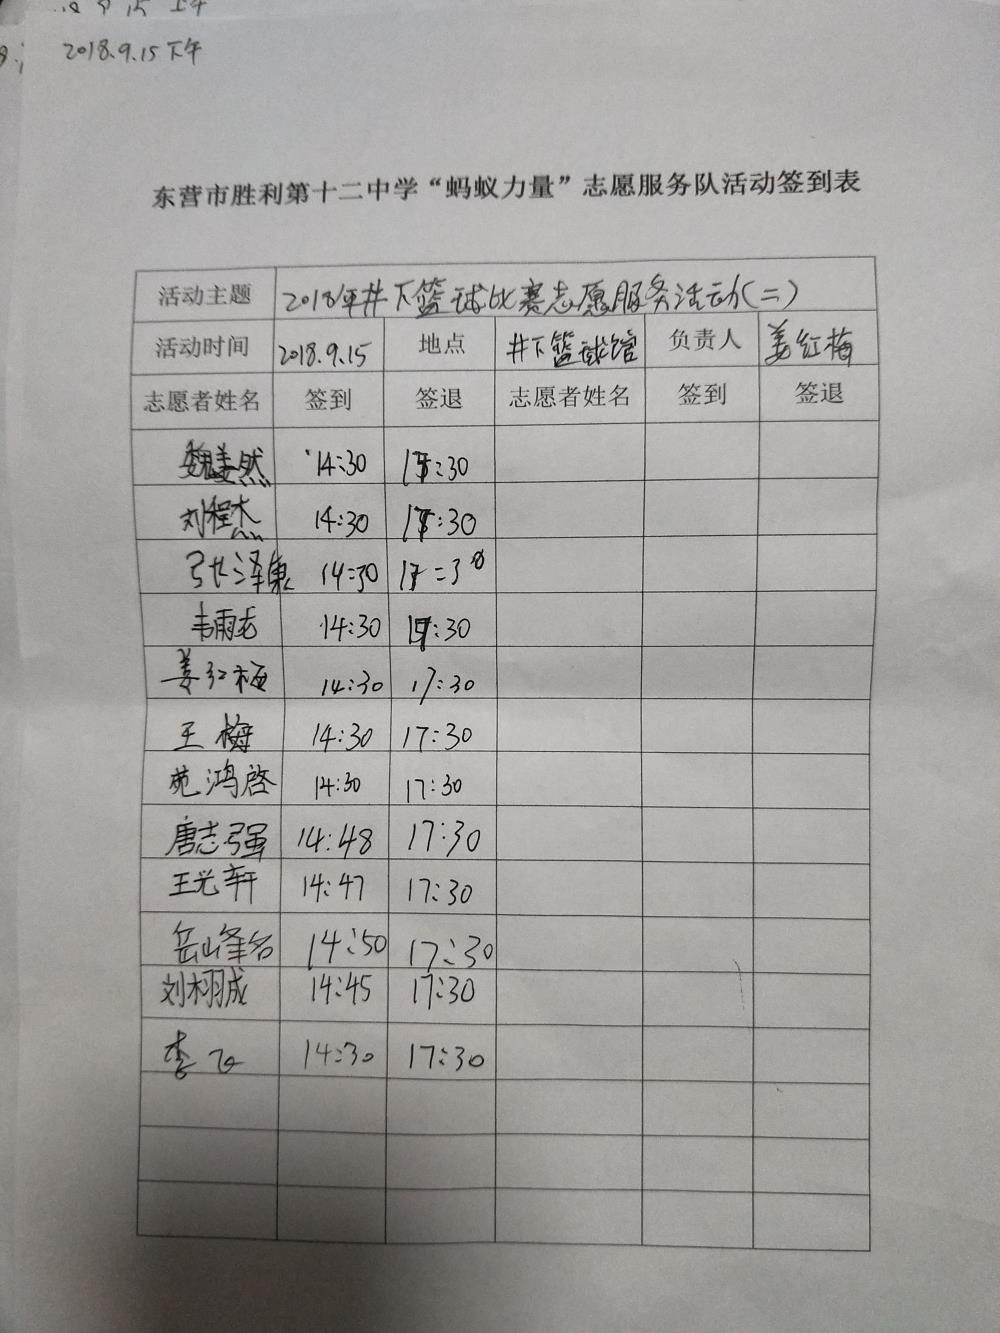 2018.9.15下午
东营市胜利第十二中学“蚂蚁力量”志愿服务队活动签到表
活动主题 2018年井下篮球比赛志愿服务活动(二)
活动时间 2018.9.15 地点 井下篮球馆 负责人 姜红梅
志愿者姓名 签到 签退 志愿者姓名 签到 签退
魏姜然 14:30 17:30
刘程杰 14:30 17:30
张泽康 14:30 17:30
韦雨龙 14:30 17:30
姜红梅 14:30 17:30
王梅 14:30 17:30
苑鸿啓 14:30 17:30
唐志强 14:48 17:30
王光轩 14:47 17:30
岳山峰名 14:50 17:30
刘栩成 14:45 17:30
李飞 14:30 17:30